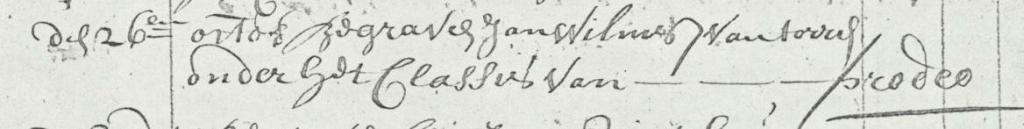 den 26en octob begraven Jan Wilmes van
onder het Classis van — — — prodeo